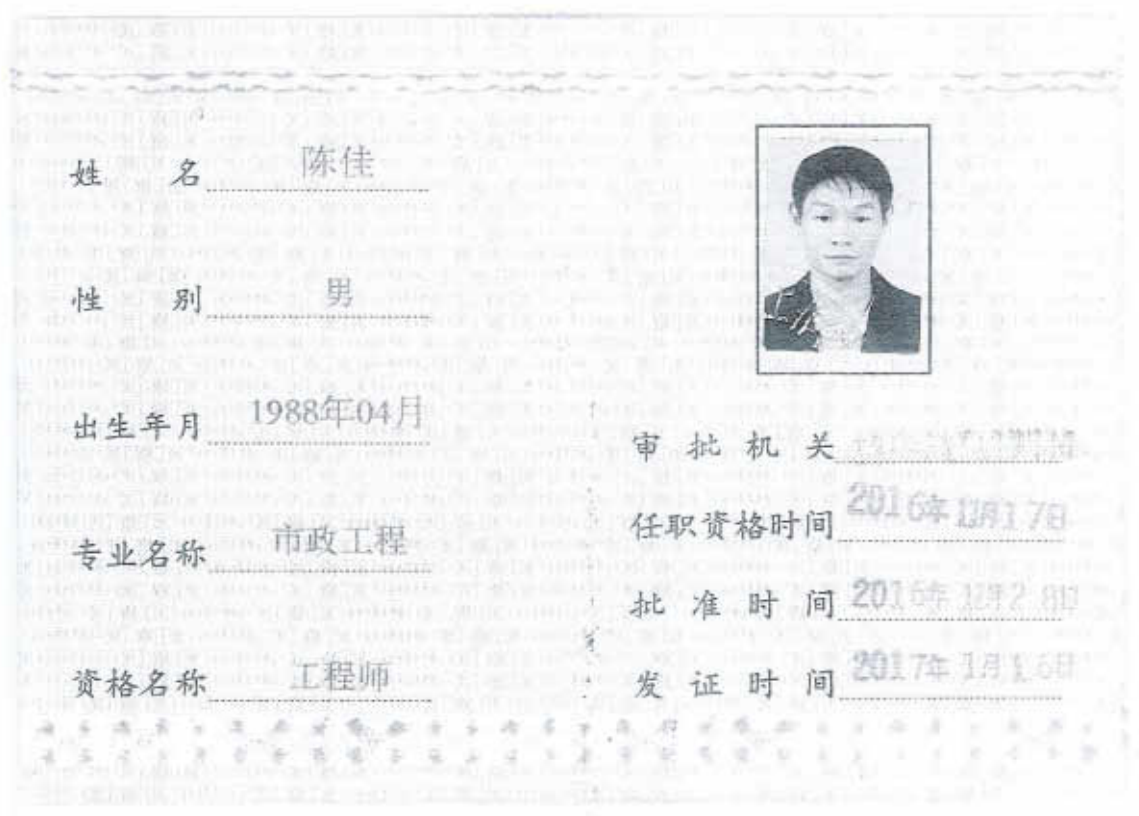 姓名 陈佳
性别 男
出生年月 1988年04月
专业名称 市政工程
资格名称 工程师
审批机关
任职资格时间 2016年11月17日
批准时间 2016年12月28日
发证时间 2017年1月16日